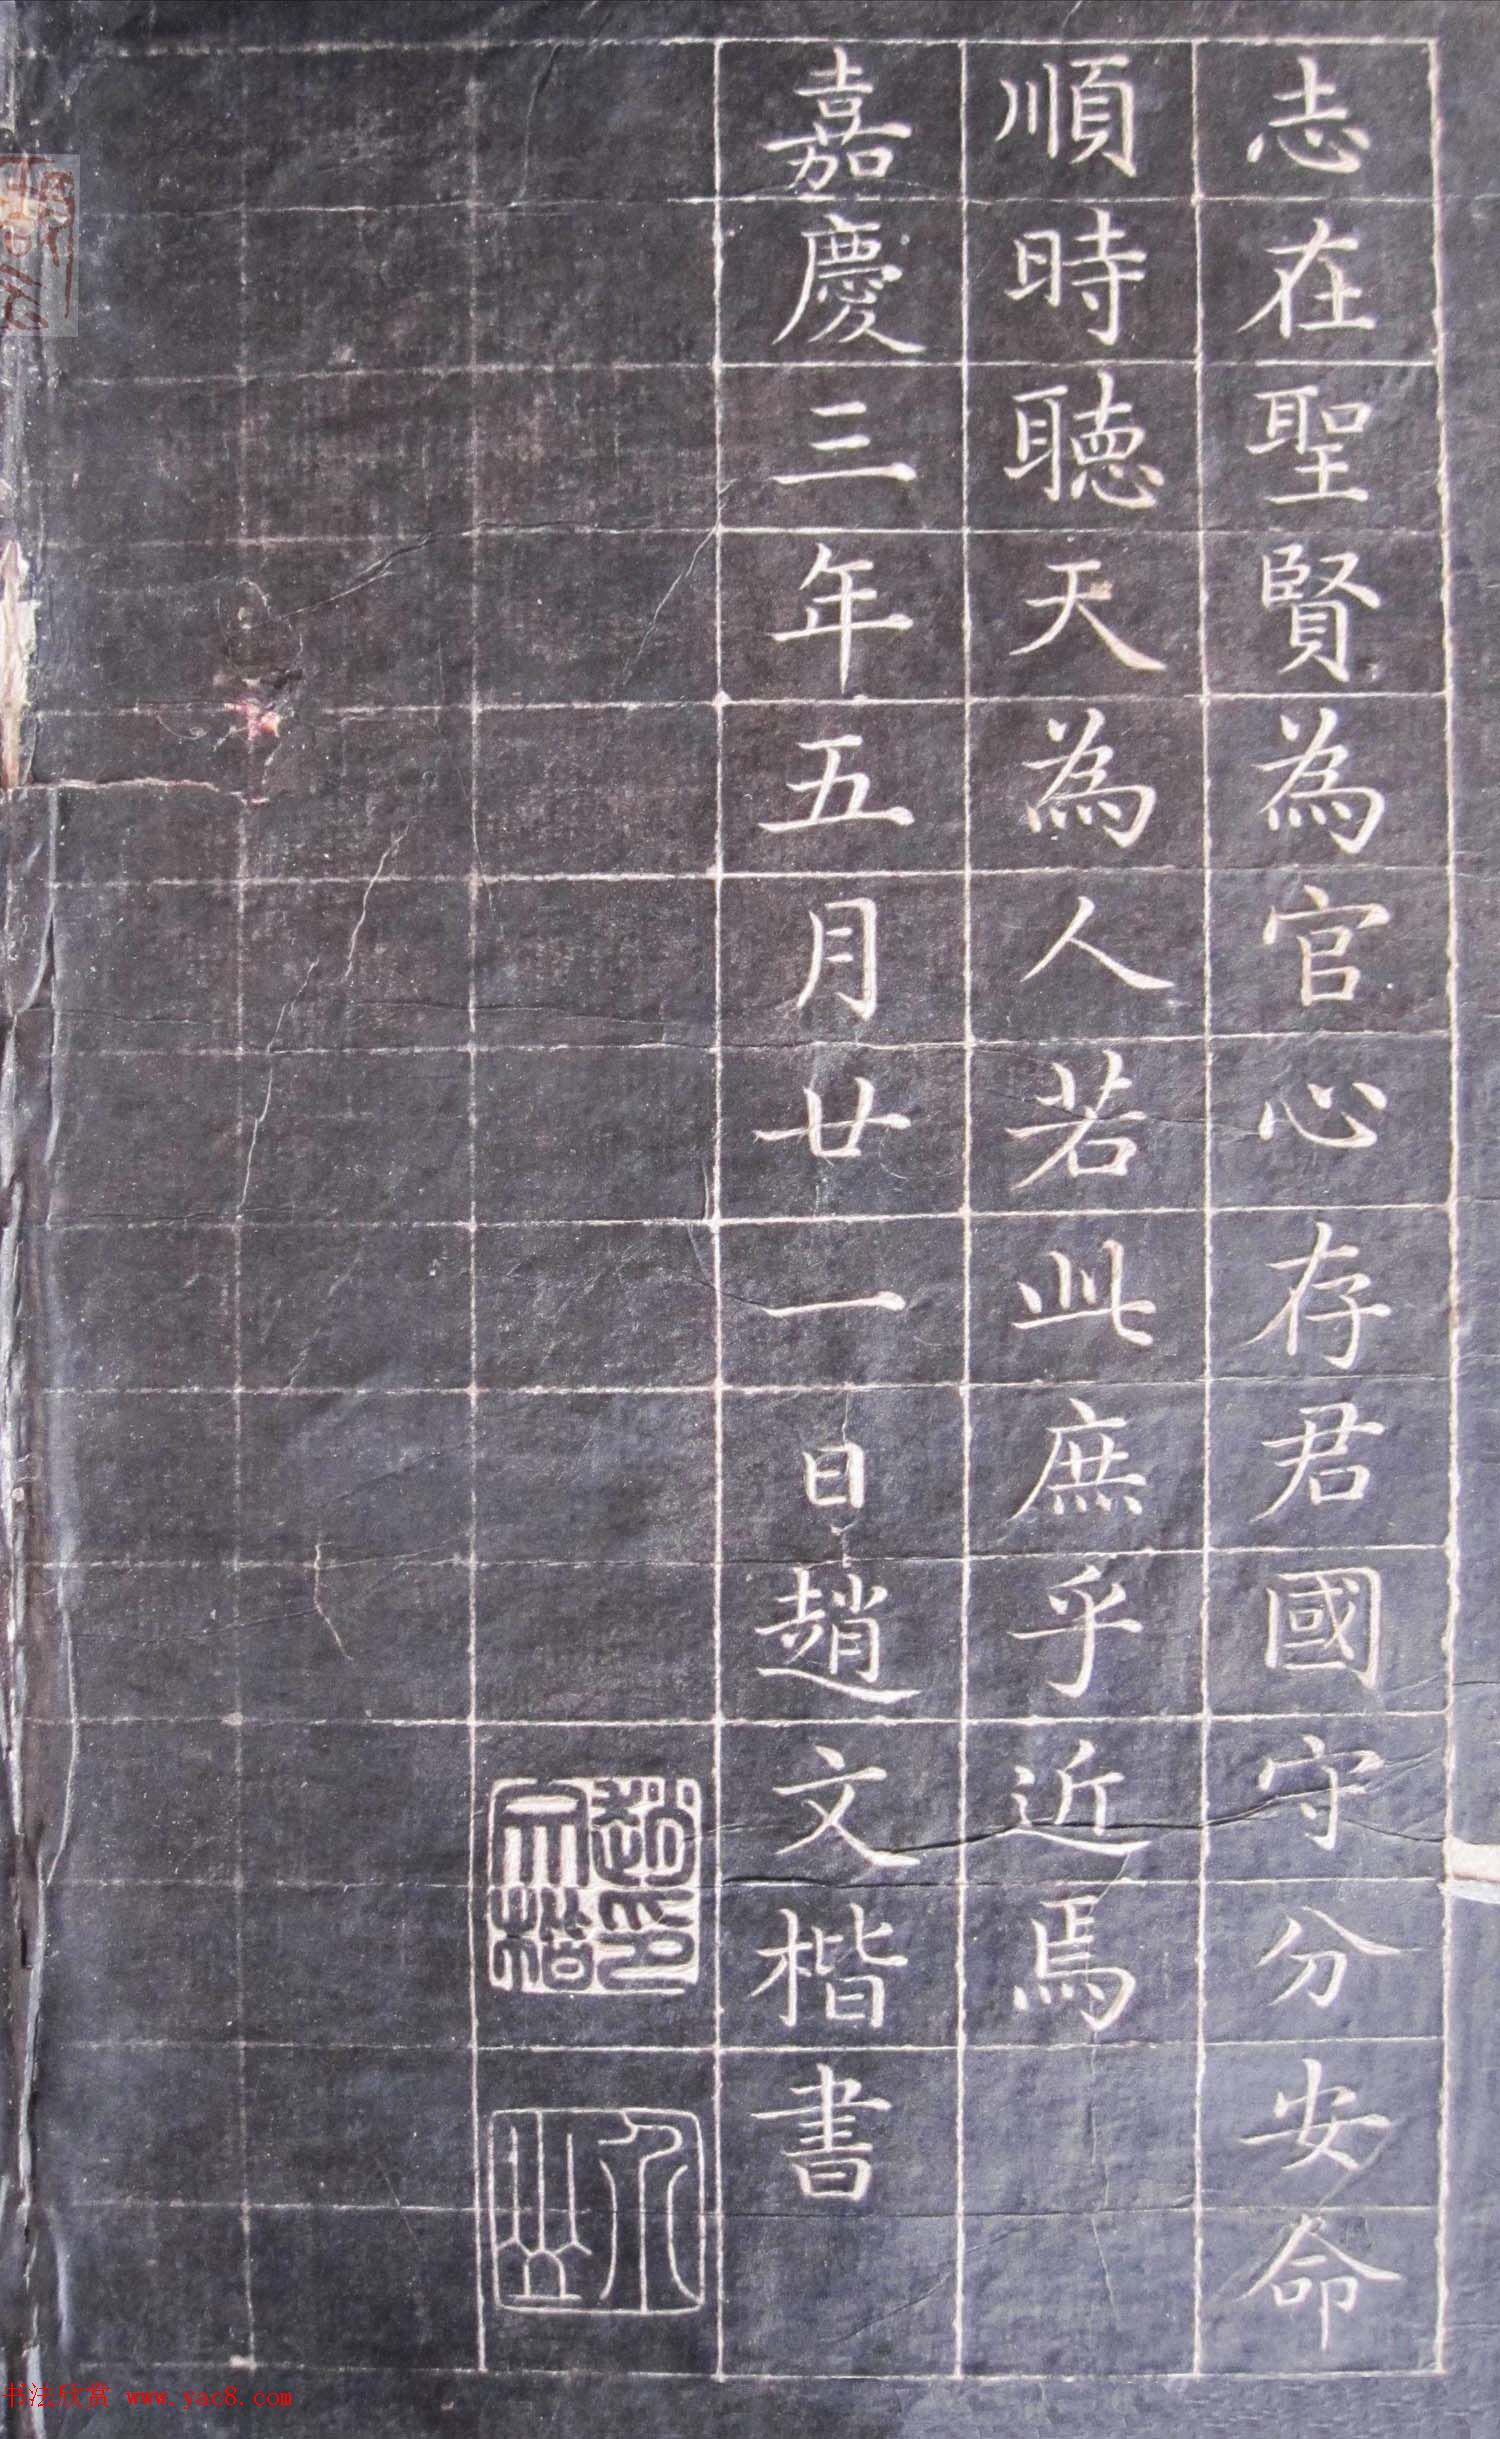 志在聖賢為官心存君國守分安命
順時聽天為人若此庶乎近焉
嘉慶三年五月廿一日趙文楷書
趙文楷印
书法欣赏 www.yac8.com